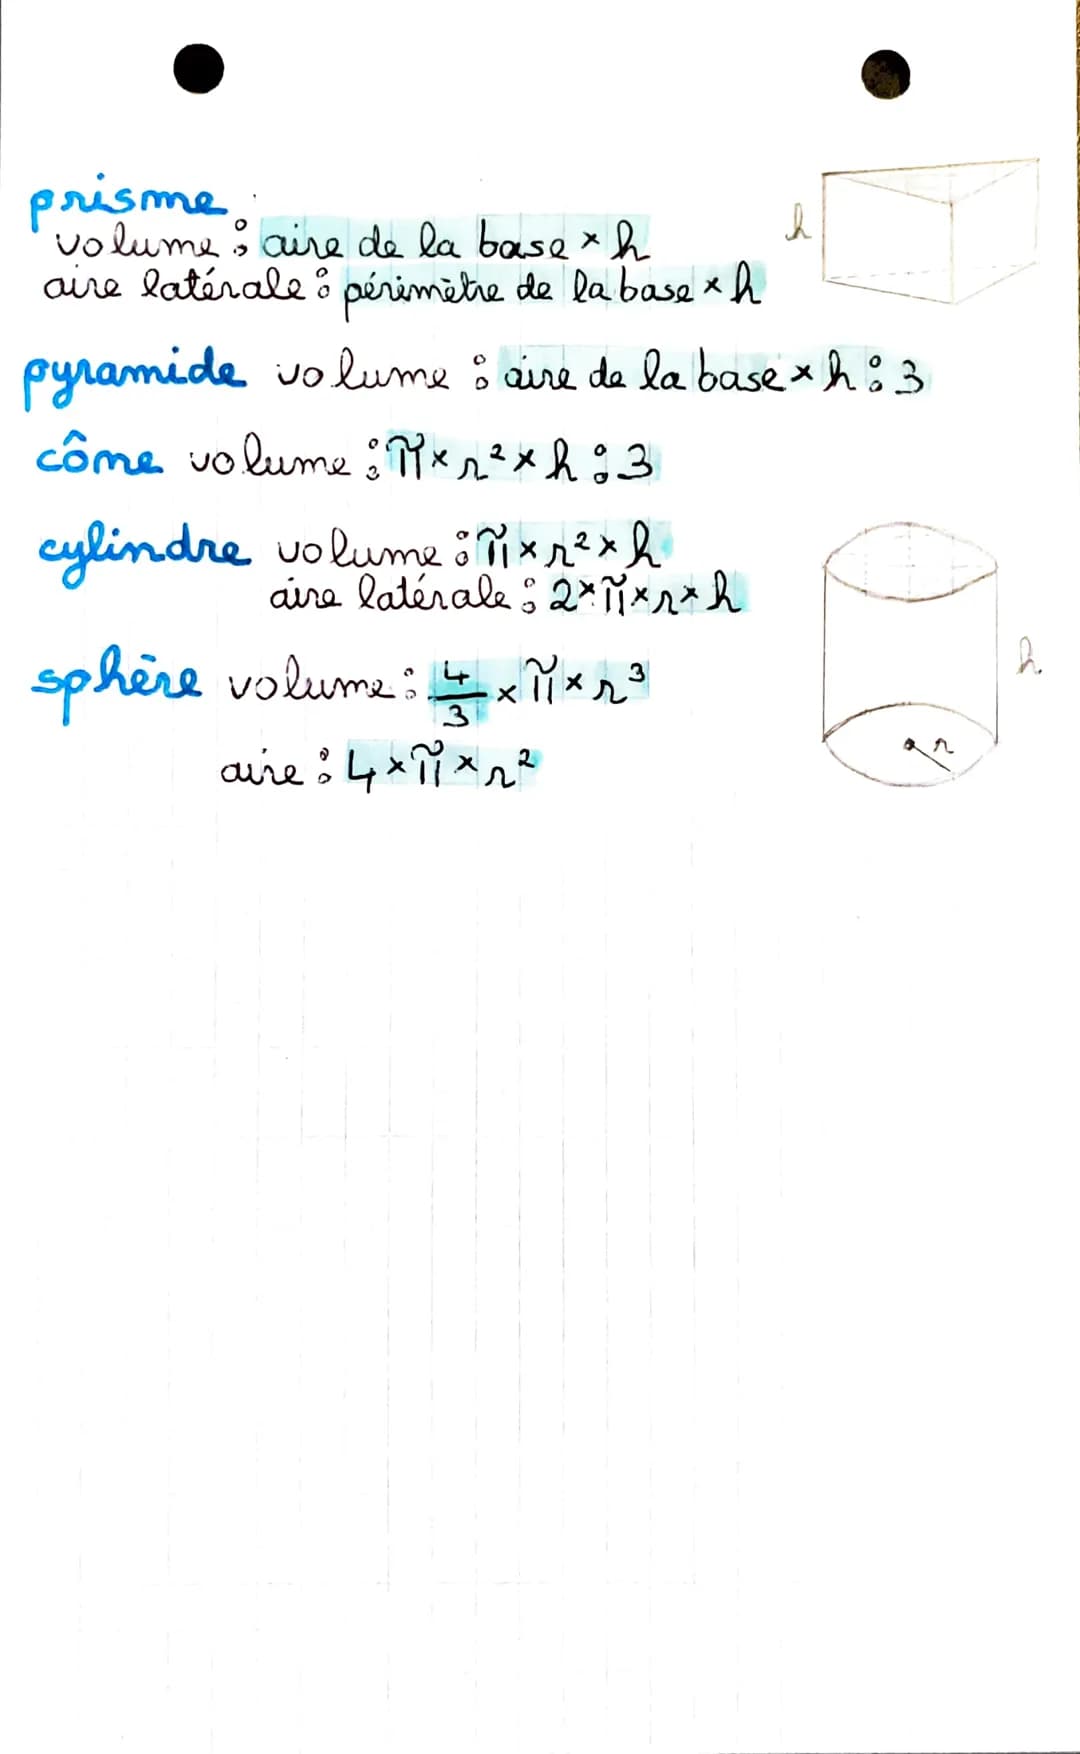 prisme
volume : aire de la base × h
aire latérale : périmètre de la base × h
h
pyramide volume : aire de la base × h : 3
cône volume : π × r² × h : 3
cylindre volume : π × r² × h
aire latérale : 2 × π × r × h
h
r
sphère volume : 4/3 × π × r³
aire : 4 × π × r²